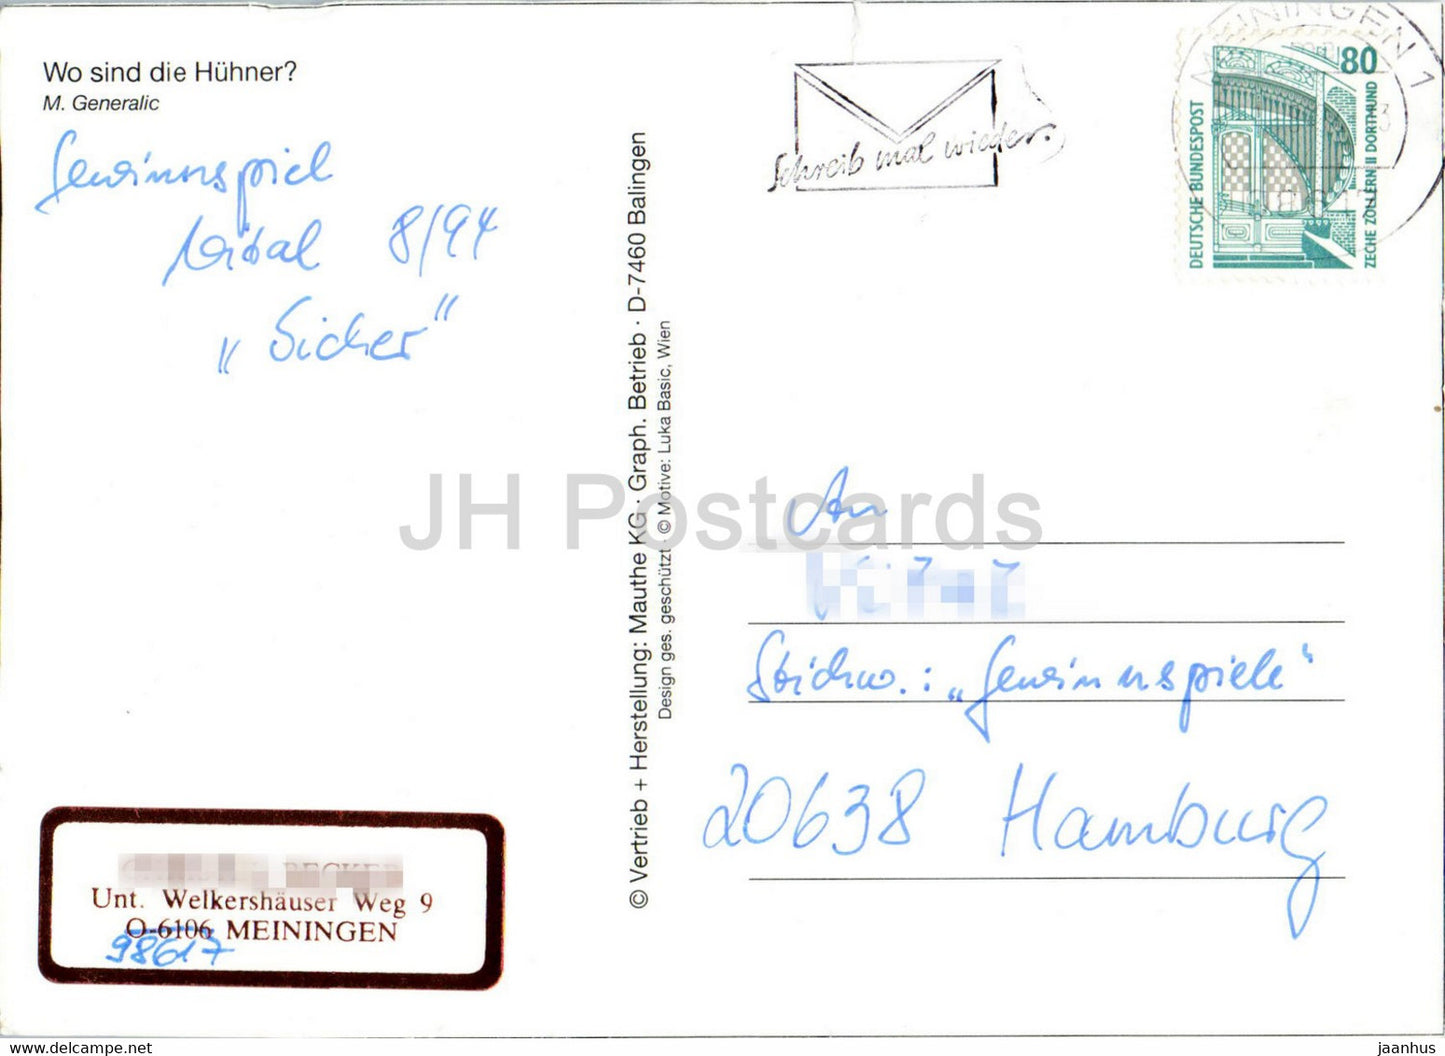 Wo sind die Hühner?
M. Generalic
Gewinnspiel
Vital 8/94
„Sicher"
Schreib mal wieder.
MEININGEN 1
80
DEUTSCHE BUNDESPOST
ZECHE ZOLLERN II DORTMUND
© Vertrieb + Herstellung: Mauthe KG · Graph. Betrieb · D-7460 Balingen
Design ges. geschützt · © Motive: Luka Basic, Wien
JH Postcards
An
Stichw.: „Gewinnspiele"
20638 Hamburg
BECKER
Unt. Welkershäuser Weg 9
O-6106 MEININGEN
98617
www.delcampe.net
jaanhus